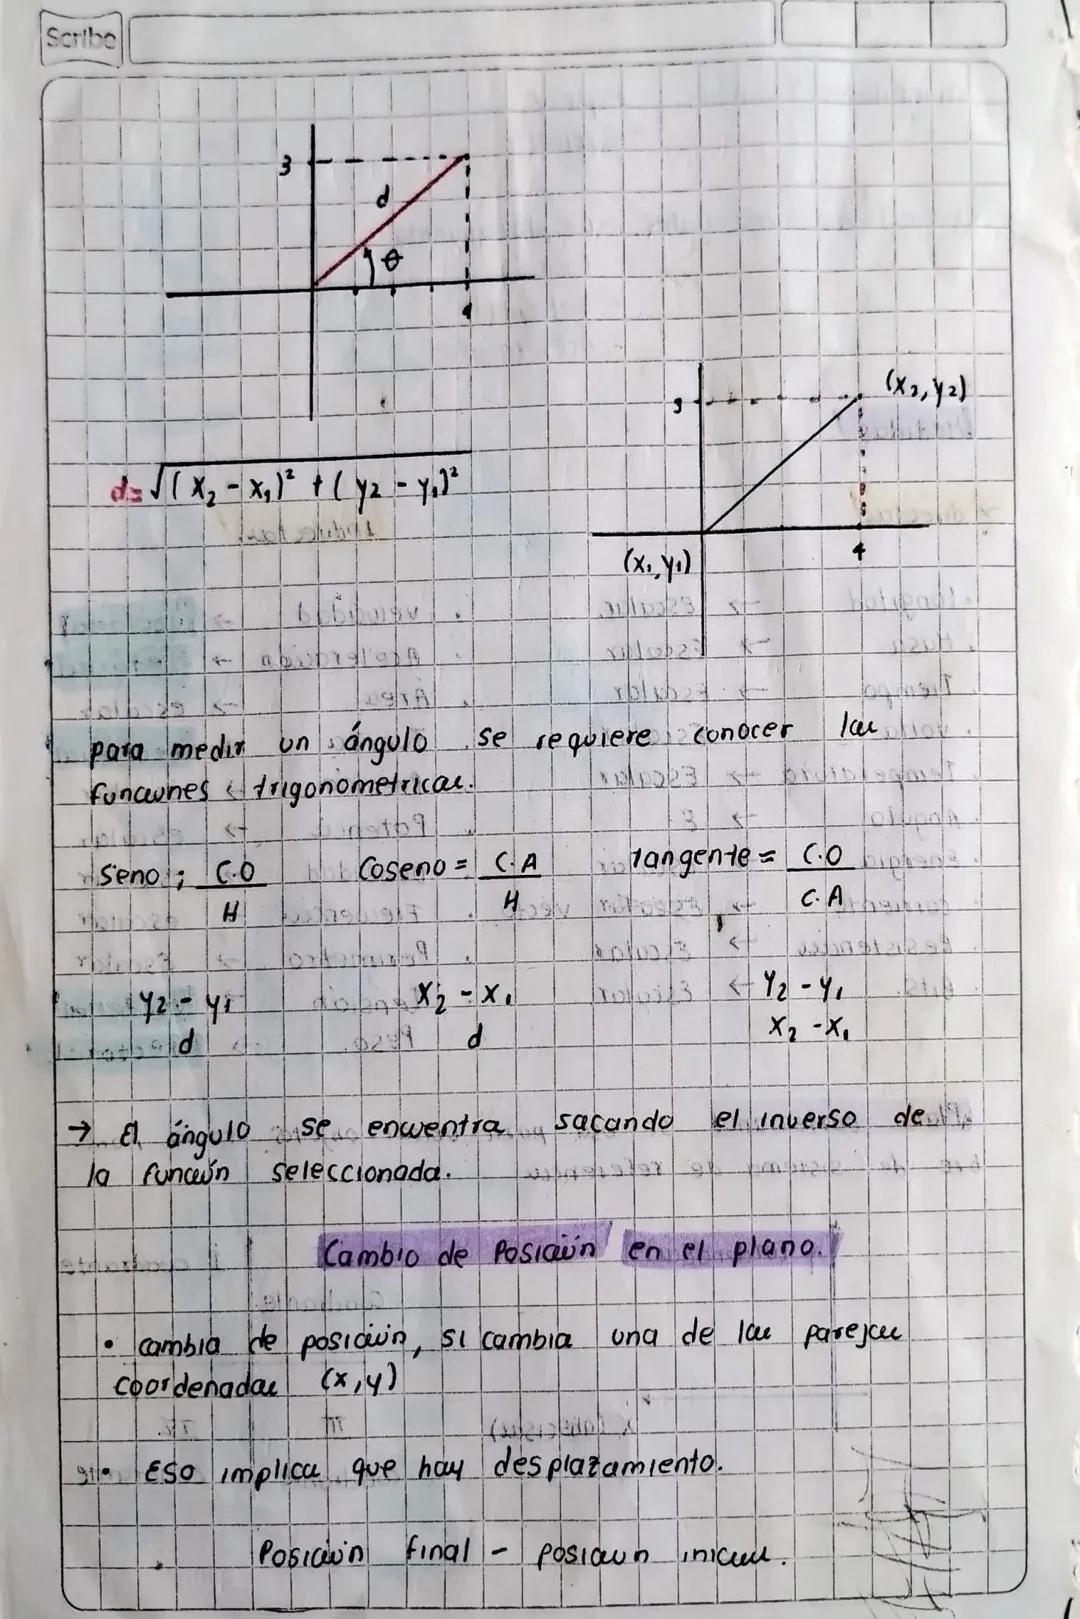 Scribe
3
d
θ
4
(x2, y2)
3
d= √(x2 - x1)² + (y2 - y1)²
(x1, y1)
4
para medir un ángulo se requiere conocer las
funciones trigonometricas.
Seno ; C.O / H Coseno = C.A / H tangente = C.O / C.A
y2 - y1 x2 - x1 y2 - y1
d d x2 - x1
→ El ángulo se encuentra sacando el inverso de
la función seleccionada.
Cambio de Posición en el plano.
• cambia de posición, si cambia una de las parejas
coordenadas (x,y)
• Eso implica que hay desplazamiento.
Posición final - posición inicial.